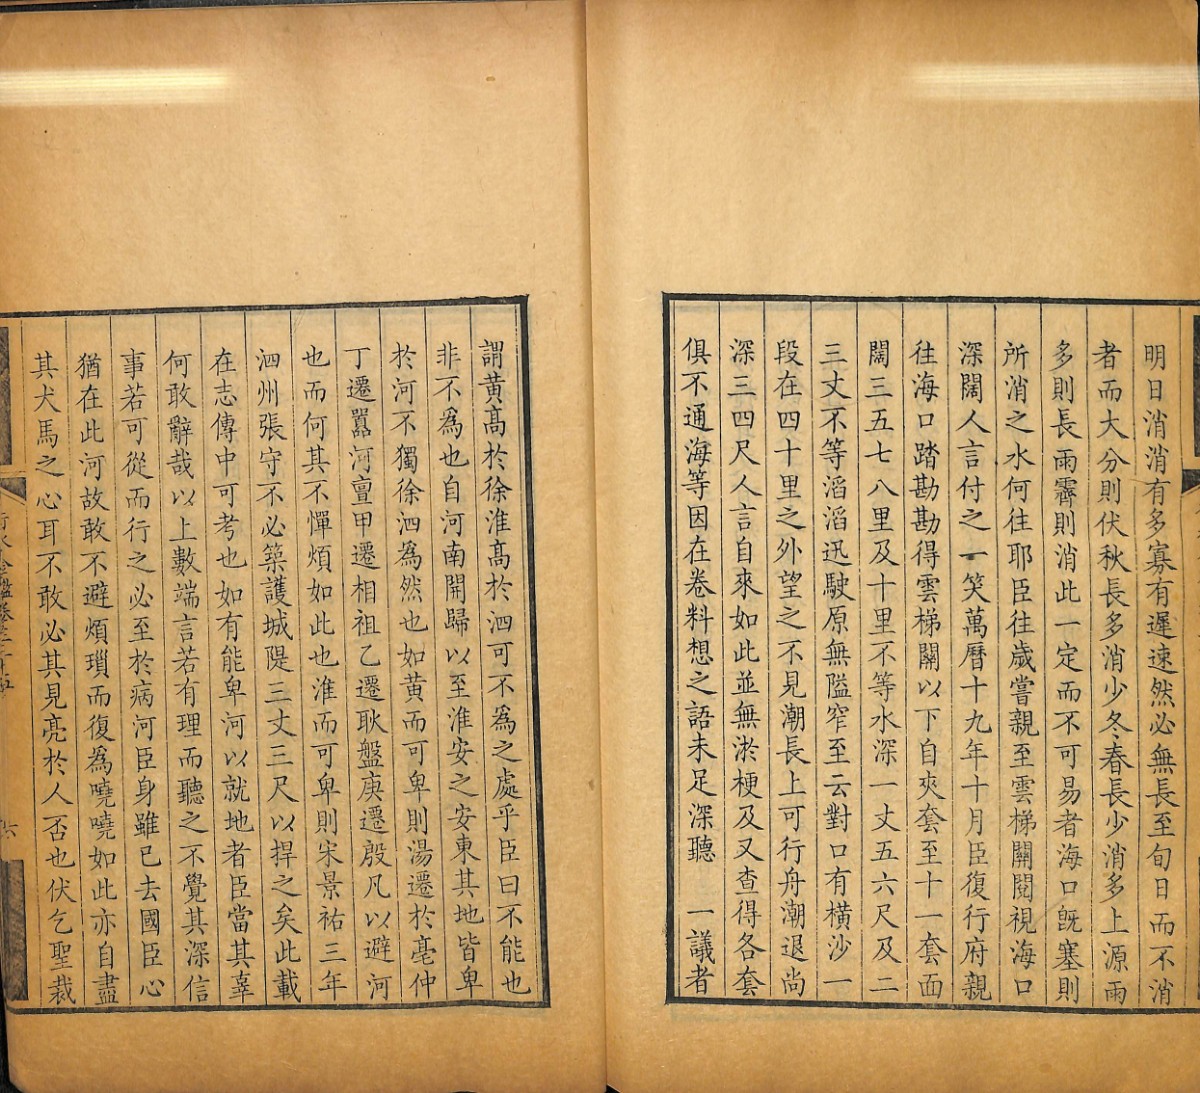 明日消消有多寡有遲速然必無長至旬日而不消
者而大分則伏秋長多消少冬春長少消多上源雨
多則長雨霽則消此一定而不可易者海口旣塞則
所消之水何往耶臣往歲嘗親至雲梯關閱視海口
深闊人言付之一笑萬曆十九年十月臣復行府親
往海口踏勘勘得雲梯關以下自夾套至十一套面
闊三五七八里及十里不等水深一丈五六尺及二
三丈不等滔滔迅駛原無隘窄至云對口有橫沙一
段在四十里之外望之不見潮長上可行舟潮退尚
深三四尺人言自來如此並無淤梗及又查得各套
俱不通海等因在卷料想之語未足深聽　一議者
謂黃高於徐淮高於泗可不爲之處乎臣曰不能也
非不爲也自河南開歸以至淮安之安東其地皆卑
於河不獨徐泗爲然也如黃而可卑則湯遷於亳仲
丁遷囂河亶甲遷相祖乙遷耿盤庚遷殷凡以避河
也而何其不憚煩如此也淮而可卑則宋景祐三年
泗州張守不必築護城隄三丈三尺以捍之矣此載
在志傳中可考也如有能卑河以就地者臣當其辜
何敢辭哉以上數端言若有理而聽之不覺其深信
事若可從而行之必至於病河臣身雖已去國臣心
猶在此河故敢不避煩瑣而復爲嘵嘵如此亦自盡
其犬馬之心耳不敢必其見亮於人否也伏乞聖裁
行水金鑑卷之三十五
六